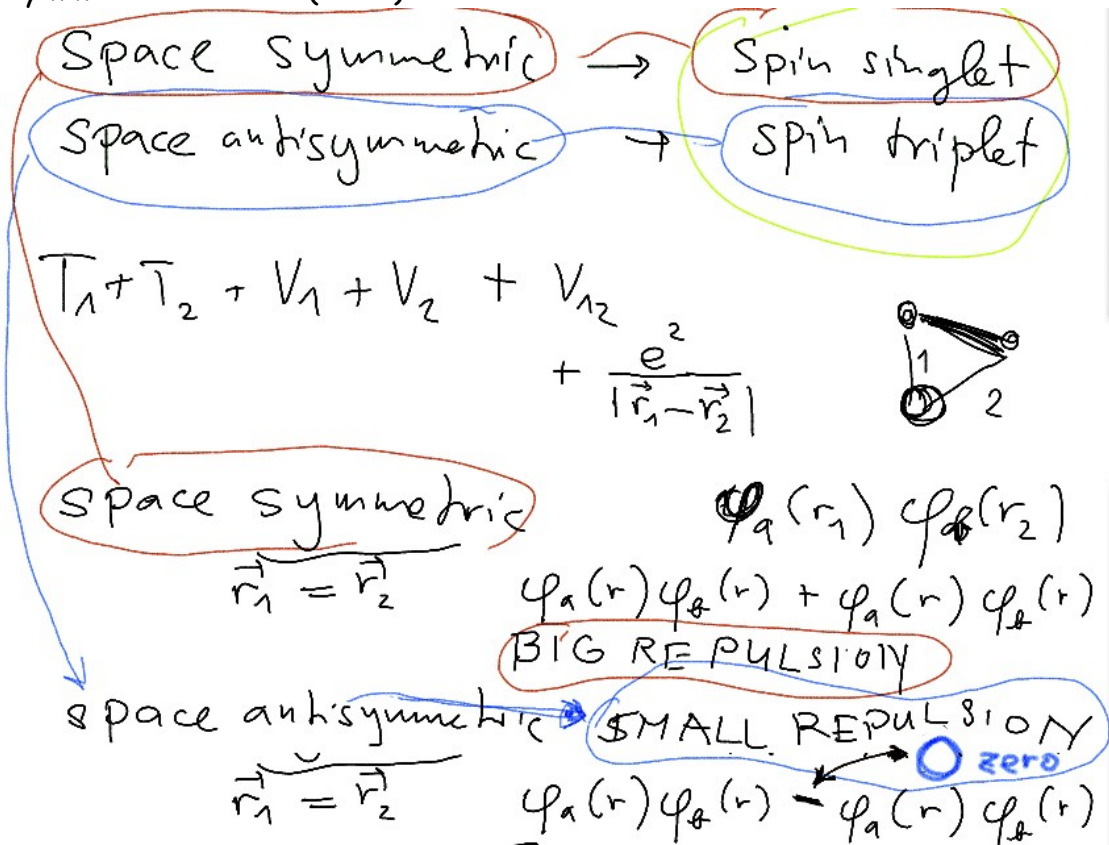 Space symmetric → Spin singlet
Space antisymmetric → Spin triplet
T₁ + T₂ + V₁ + V₂ + V₁₂
+ e² / |r⃗₁ − r⃗₂|
1
2
space symmetric
φₐ(r₁) φ_b(r₂)
r⃗₁ = r⃗₂
φₐ(r) φ_b(r) + φₐ(r) φ_b(r)
BIG REPULSION
space antisymmetric
SMALL REPULSION
zero
r⃗₁ = r⃗₂
φₐ(r) φ_b(r) − φₐ(r) φ_b(r)